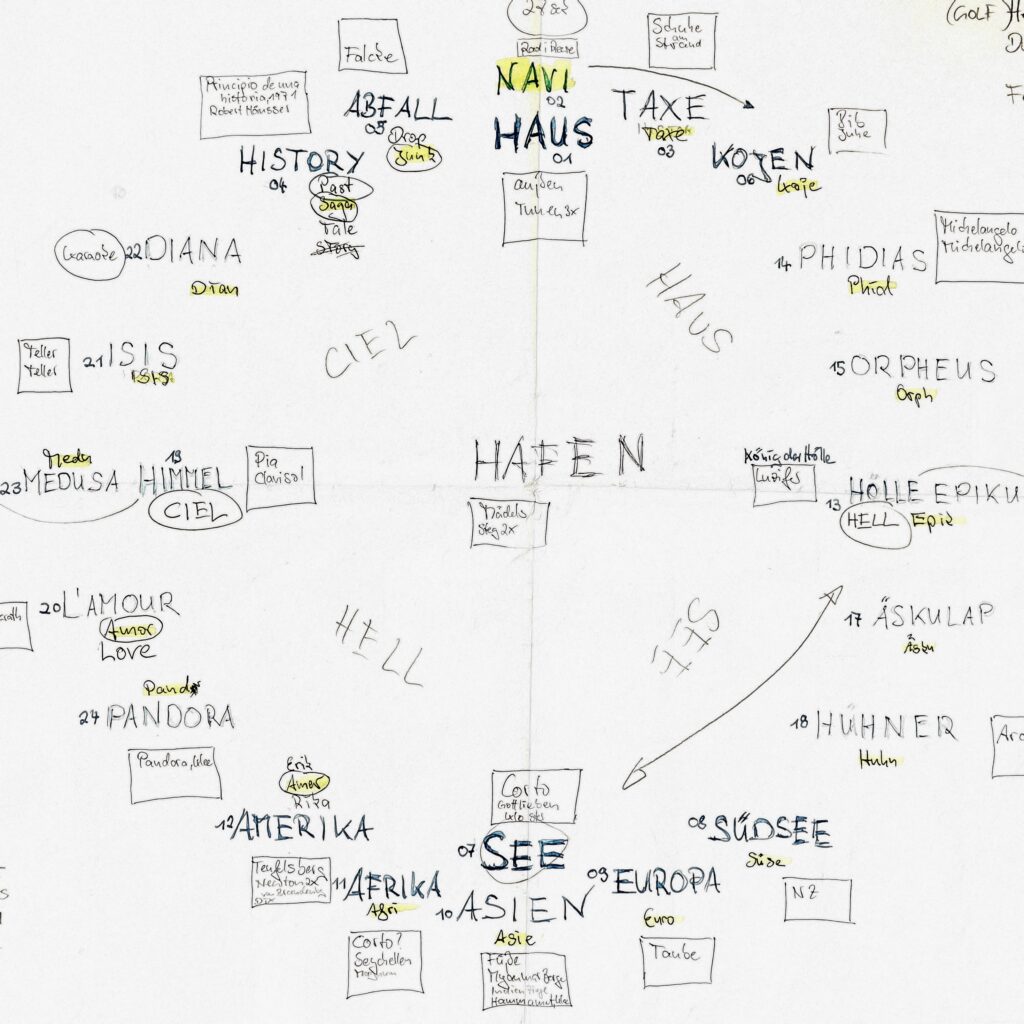 (GOLF)
Falcke
Schuhe
am
Strand
NAVI
02
Principio de una
historia, 1971
ABFALL
05
Drop
Junk
HAUS
01
TAXE
Taxe
03
HISTORY
04
Past
Saga
Tale
Story
KOJEN
06
Koje
außen
22 DIANA
Dian
14 PHIDIAS
Phid
Michelangelo
HAUS
CIEL
Teller
Teller
21 ISIS
ISIS
15 ORPHEUS
Orph
HAFEN
Mädels
Steg 2x
Medu
23 MEDUSA
19
HIMMEL
CIEL
Pia
König der Hölle
Luzifer
13 HÖLLE
HELL
EPIKU
Epik
20 L'AMOUR
Amor
Love
HELL
SEE
17 ÄSKULAP
Äsku
Pand
24 PANDORA
18 HÜHNER
Huhn
Erik
Amer
Rika
12 AMERIKA
Teufelsberg
Corto
Gottlieben
07 SEE
08 SÜDSEE
Süse
NZ
11 AFRIKA
Afri
Corto?
Seychellen
10 ASIEN
Asie
Füße
09 EUROPA
Euro
Taube